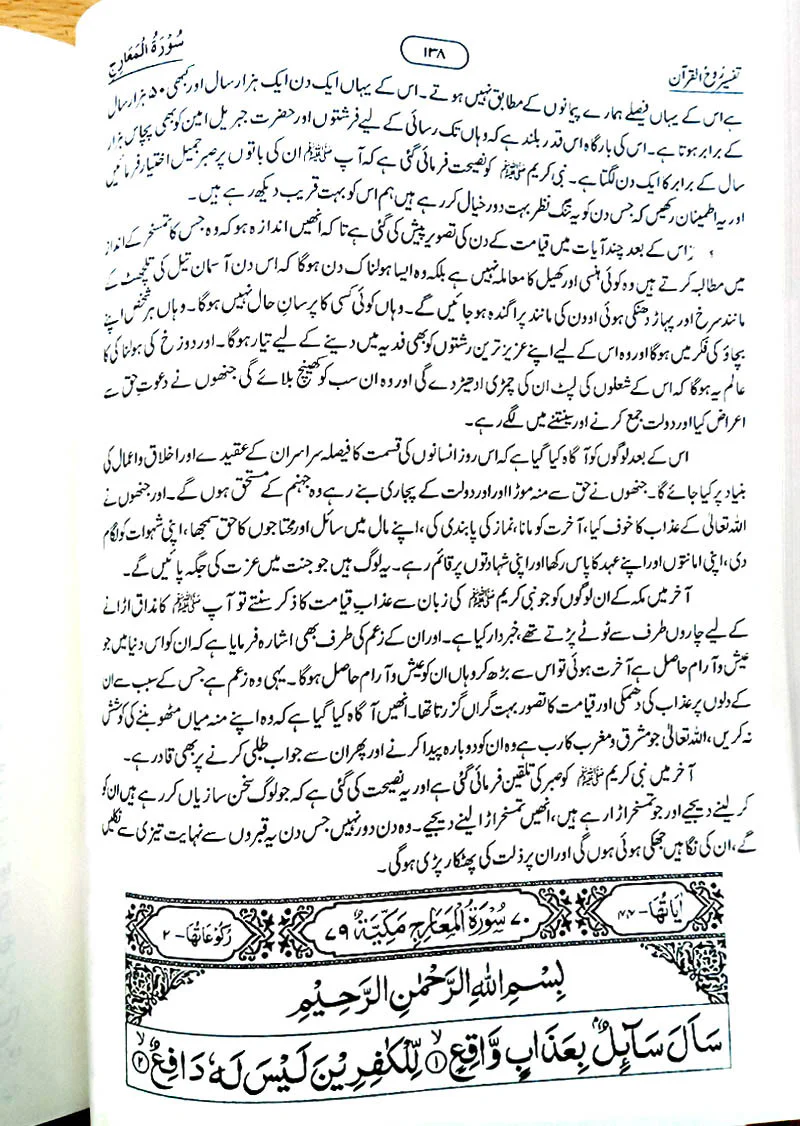 تفسیر روح القرآن
۱۳۸
سُوْرَةُ الْمَعَارِجِ
ہے اس کے یہاں فیصلے ہمارے پیمانوں کے مطابق نہیں ہوتے۔ اس کے یہاں ایک دن ایک ہزار سال اور کبھی ۵۰ ہزار سال
کے برابر ہوتا ہے۔ اس کی بارگاہ اس قدر بلند ہے کہ وہاں تک رسائی کے لیے فرشتوں اور حضرت جبریل امین کو بھی پچاس ہزار
سال کے برابر کا ایک دن لگتا ہے۔ نبی کریم ﷺ کو نصیحت فرمائی گئی ہے کہ آپ ﷺ ان کی باتوں پر صبر جمیل اختیار فرمائیں
اور یہ اطمینان رکھیں کہ جس دن کو یہ تنگ نظر بہت دور خیال کر رہے ہیں ہم اس کو بہت قریب دیکھ رہے ہیں۔
اس کے بعد چند آیات میں قیامت کے دن کی تصویر پیش کی گئی ہے تاکہ انھیں اندازہ ہو کہ وہ جس کا تمسخر کے انداز
میں مطالبہ کرتے ہیں وہ کوئی ہنسی اور کھیل کا معاملہ نہیں ہے بلکہ وہ ایسا ہولناک دن ہوگا کہ اس دن آسمان تیل کی تلچھٹ کے
مانند سرخ اور پہاڑ دھنکی ہوئی اودن کی مانند پراگندہ ہو جائیں گے۔ وہاں کوئی کسی کا پرسانِ حال نہیں ہوگا۔ وہاں ہر شخص اپنے
بچاؤ کی فکر میں ہوگا اور وہ اس کے لیے اپنے عزیز ترین رشتوں کو بھی فدیہ میں دینے کے لیے تیار ہوگا۔ اور دوزخ کی ہولناکی کا
عالم یہ ہوگا کہ اس کے شعلوں کی لپٹ ان کی چمڑی ادھیڑ دے گی اور وہ ان سب کو کھینچ بلائے گی جنھوں نے دعوتِ حق سے
اعراض کیا اور دولت جمع کرنے اور سینتنے میں لگے رہے۔
اس کے بعد لوگوں کو آگاہ کیا گیا ہے کہ اس روز انسانوں کی قسمت کا فیصلہ سراسر ان کے عقیدے اور اخلاق و اعمال کی
بنیاد پر کیا جائے گا۔ جنھوں نے حق سے منہ موڑا اور اور دولت کے پجاری بنے رہے وہ جہنم کے مستحق ہوں گے۔ اور جنھوں نے
اللہ تعالیٰ کے عذاب کا خوف کیا، آخرت کو مانا، نماز کی پابندی کی، اپنے مال میں سائل اور محتاجوں کا حق سمجھا، اپنی شہوات کو لگام
دی، اپنی امانتوں اور اپنے عہد کا پاس رکھا اور اپنی شہادتوں پر قائم رہے۔ یہ لوگ ہیں جو جنت میں عزت کی جگہ پائیں گے۔
آخر میں مکہ کے ان لوگوں کو جو نبی کریم ﷺ کی زبان سے عذاب قیامت کا ذکر سنتے تو آپ ﷺ کا مذاق اڑانے
کے لیے چاروں طرف سے ٹوٹے پڑتے تھے، خبردار کیا ہے۔ اور ان کے زعم کی طرف بھی اشارہ فرمایا ہے کہ ان کو اس دنیا میں جو
عیش و آرام حاصل ہے آخرت ہوئی تو اس سے بڑھ کر وہاں ان کو عیش و آرام حاصل ہوگا۔ یہی وہ زعم ہے جس کے سبب سے ان
کے دلوں پر عذاب کی دھمکی اور قیامت کا تصور بہت گراں گزرتا تھا۔ انھیں آگاہ کیا گیا ہے کہ وہ اپنے منہ میاں مٹھو بننے کی کوشش
نہ کریں، اللہ تعالیٰ جو مشرق و مغرب کا رب ہے وہ ان کو دوبارہ پیدا کرنے اور پھر ان سے جواب طلبی کرنے پر بھی قادر ہے۔
آخر میں نبی کریم ﷺ کو صبر کی تلقین فرمائی گئی ہے اور یہ نصیحت کی گئی ہے کہ جو لوگ سخن سازیاں کر رہے ہیں ان کو
کر لینے دیجیے اور جو تمسخر اڑا رہے ہیں، انھیں تمسخر اڑا لینے دیجیے۔ وہ دن دور نہیں جس دن یہ قبروں سے نہایت تیزی سے نکلیں
گے، ان کی نگاہیں جھکی ہوئی ہوں گی اور ان پر ذلت کی پھٹکار پڑی ہوگی۔
اٰیَاتُهَا-۴۴ ۷۰ سُوْرَةُ الْمَعَارِجِ مَكِّیَّةٌ ۷۹ رُكُوْعَاتُهَا-۲
بِسْمِ اللّٰهِ الرَّحْمٰنِ الرَّحِیْمِ
سَاَلَ سَآىِٕلٌۢ بِعَذَابٍ وَّاقِعٍۙ۝۱ لِّلْكٰفِرِیْنَ لَیْسَ لَهٗ دَافِعٌۙ۝۲